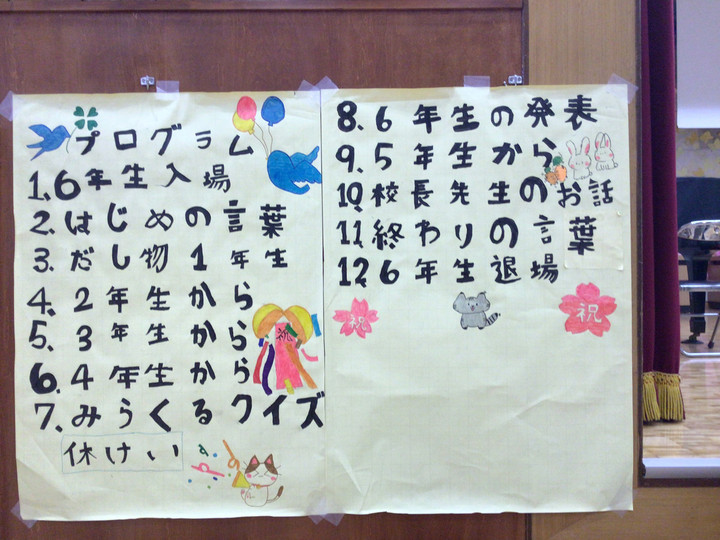 プログラム
1.6年生入場
2.はじめの言葉
3.だし物1年生
4.2年生から
5.3年生から
6.4年生から
7.みうくるクイズ
休けい
祝
8.6年生の発表
9.5年生から
10.校長先生のお話
11.終わりの言葉
12.6年生退場
祝
祝